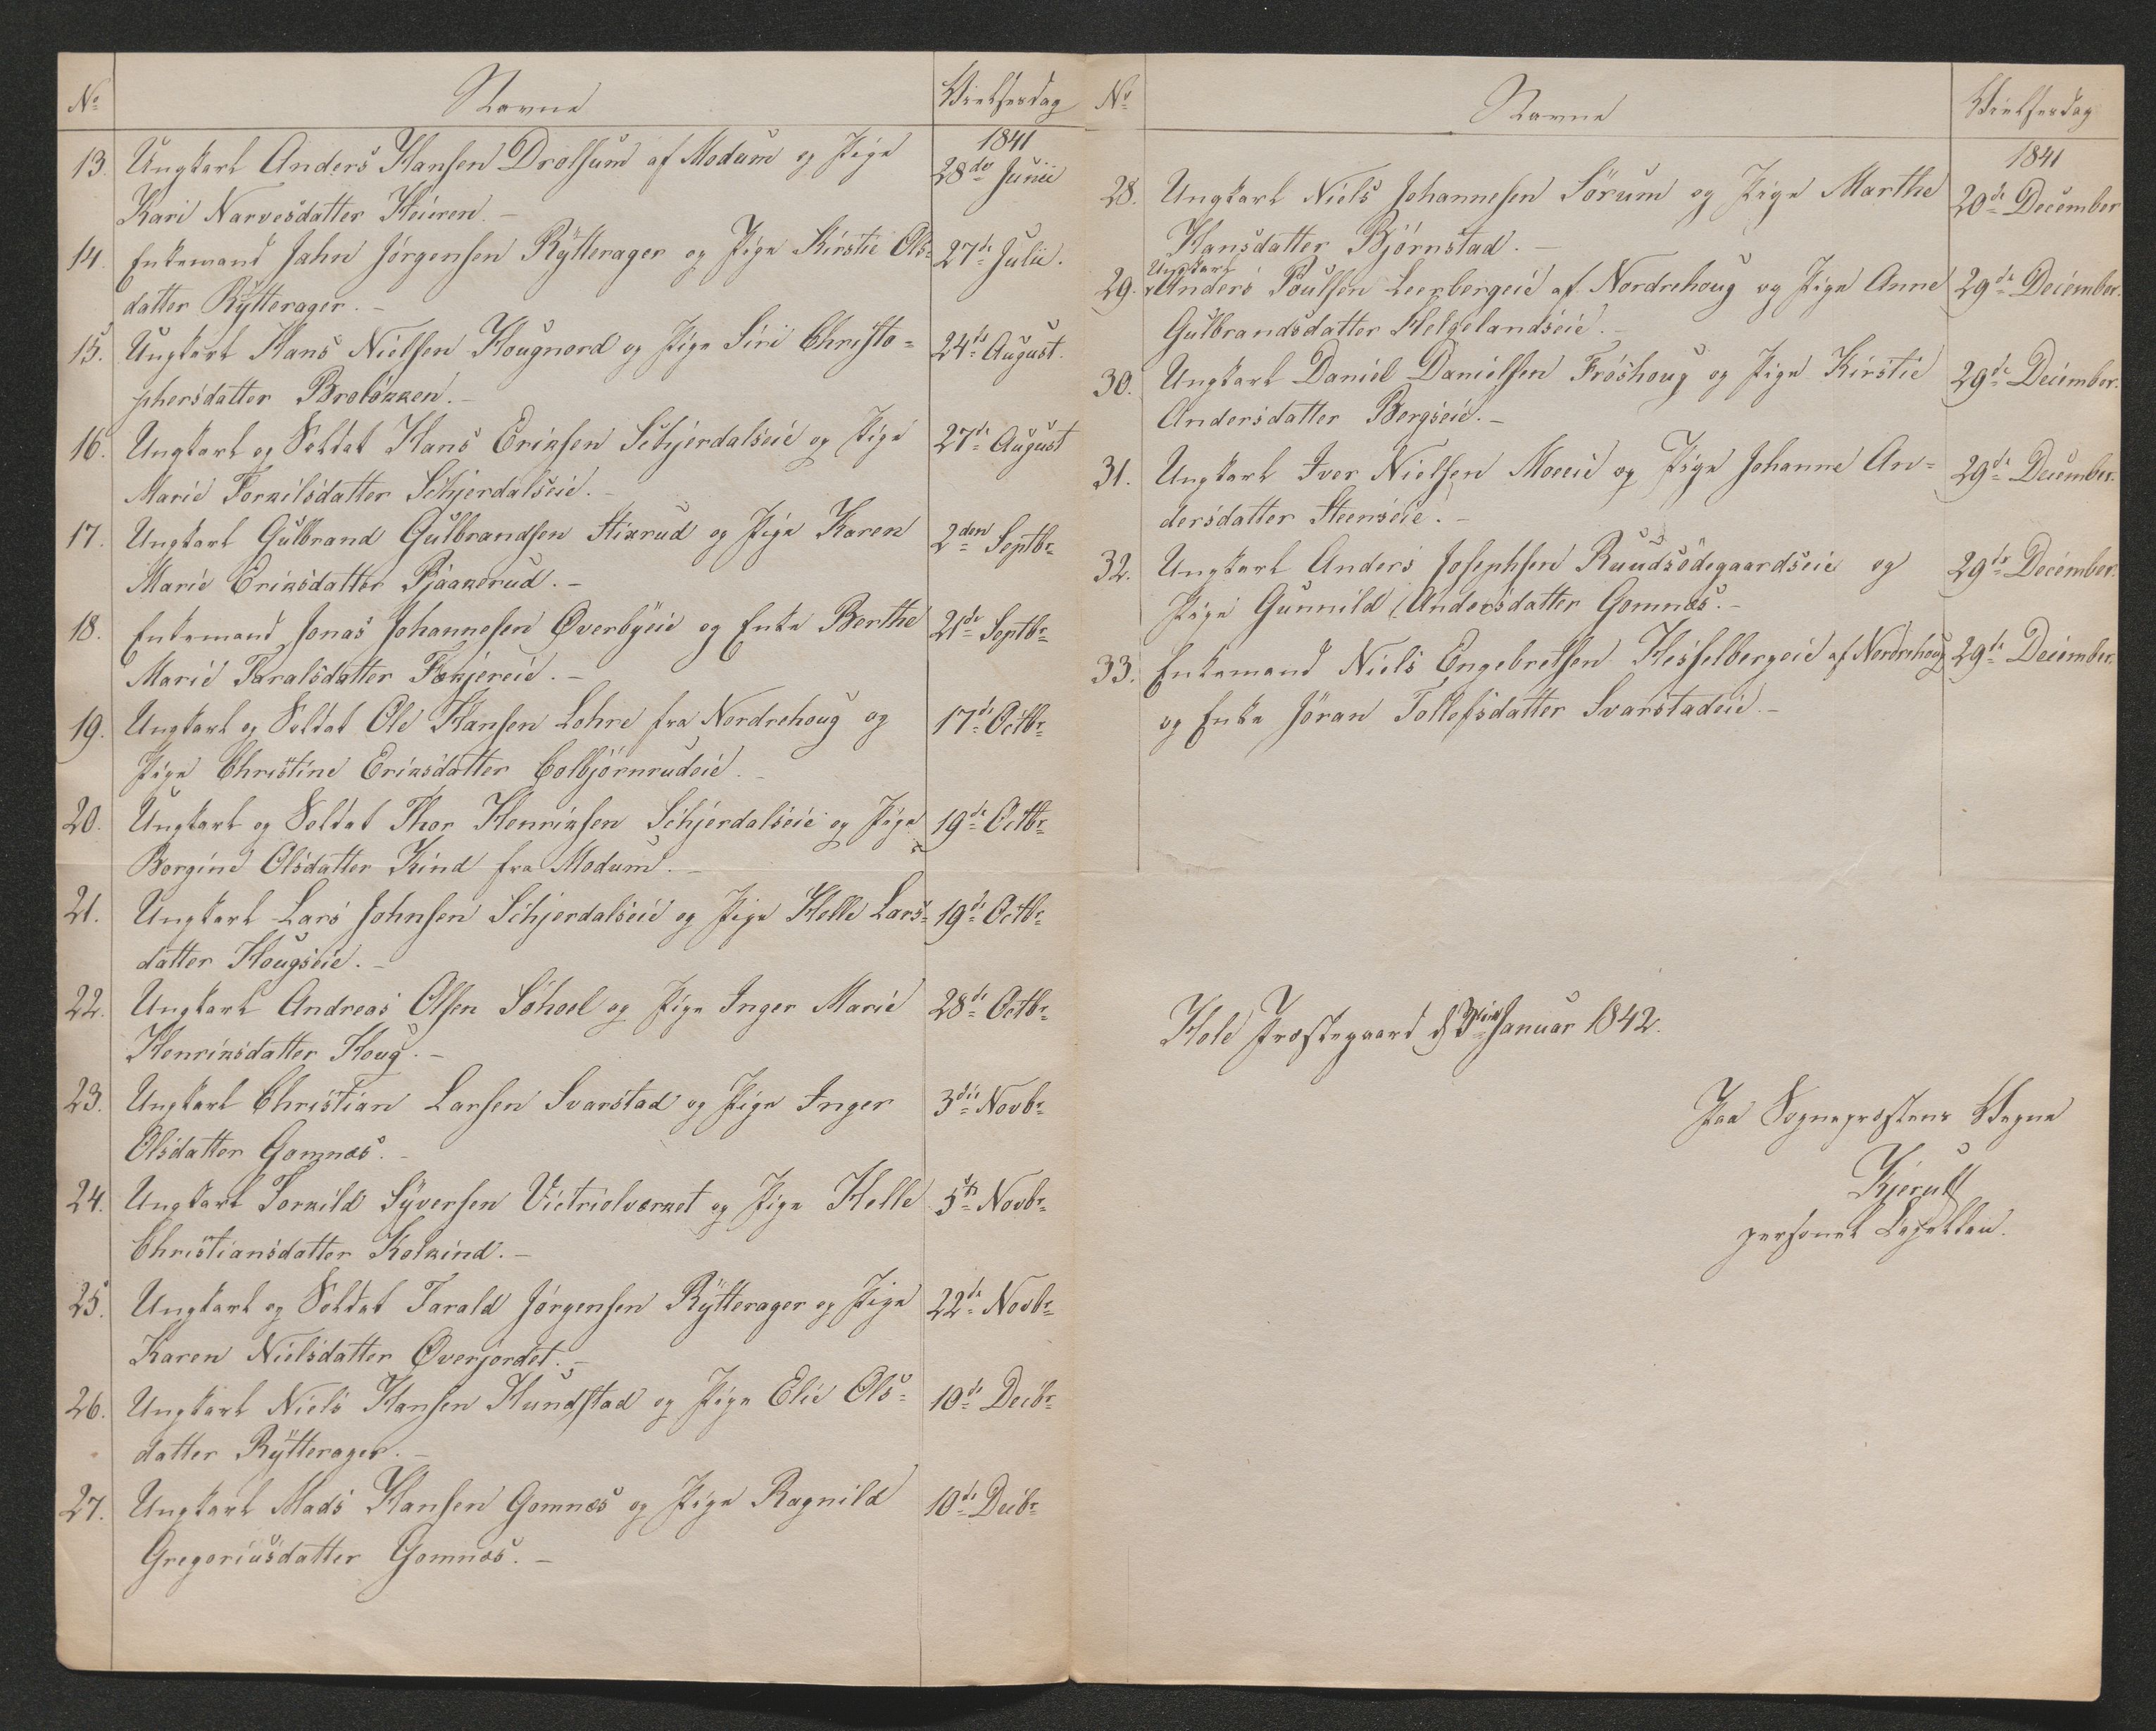 No Navne Vielsesdag
1841
13. Ungkarl Anders Hansen Drolsum af Modum og Pige 28de Junii
Kari Narvesdatter Heieren. -
14. Enkemand Jahn Jörgensen Rÿtterager og Pige Kirstie Ols= 27de Julii.
datter Rÿtterager. -
15. Ungkarl Hans Nielsen Hougnord og Pige Siri Christo= 24de August.
phersdatter Brolökken. -
16. Ungkarl og Soldat Hans Eriksen Schjerdalseie og Pige 27de August
Marie Torkilsdatter Schjerdalseie. -
17. Ungkarl Gulbrand Gulbrandsen Stixrud og Pige Karen 2den Septbr
Marie Eriksdatter Pjaakerud. -
18. Enkemand Jonas Johannesen Överbÿeie og Enke Berthe 21de Septbr
Marie Taralsdatter Fækjereie. -
19. Ungkarl og Soldat Ole Hansen Lohre fra Nordrehoug og 17de Octbr
Pige Christine Eriksdatter Colbjörnrudeie. -
20. Ungkarl og Soldat Thor Henriksen Schjerdalseie og Pige 19de Octbr
Borgine Olsdatter Kind fra Modum. -
21. Ungkarl Lars Johnsen Schjerdalseie og Pige Helle Lars= 19de Octbr
datter Hougseie. -
22. Ungkarl Andreas Olsen Söhoel og Pige Inger Marie 28de Octbr
Henriksdatter Houg. -
23. Ungkarl Christian Larsen Svarstad og Pige Inger 3die Novbr
Olsdatter Gomnæs. -
24. Ungkarl Torkild Sÿversen Victriolværket og Pige Helle 5te Novbr
Christiansdatter Kolkind. -
25. Ungkarl og Soldat Tarald Jörgensen Rÿtterager og Pige 22de Novbr
Karen Nielsdatter Överjordet. -
26. Ungkarl Niels Hansen Hundstad og Pige Elie Ols= 10de Decbr
datter Rÿtterager. -
27. Ungkarl Mads Hansen Gomnæs og Pige Ragnild 10de Decbr
Gregoriusdatter Gomnæs. -
No Navne Vielsesdag
1841
28. Ungkarl Niels Johannesen Sörum og Pige Marthe 20de December
Hansdatter Björnstad. -
Ungkarl
29. Anders Poulsen Leerbergeie af Nordrehoug og Pige Anne 29de December.
Gulbrandsdatter Helgelandseie. -
30. Ungkarl Daniel Danielsen Fröshoug og Pige Kirstie 29de December.
Andersdatter Bergseie. -
31. Ungkarl Iver Nielsen Moeeie og Pige Johanne An= 29de December.
dersdatter Steenseie. -
32. Ungkarl Anders Josephsen Ruudsödegaardseie og 29de December.
Pige Gunnild Andersdatter Gomnæs. -
33. Enkemand Niels Engebretsen Hesselbergeie af Nordrehoug 29de December.
og Enke Jöran Tollefsdatter Svarstadeie. -
Hole Præstegaard d 3die Januar 1842.
Paa Sognepræstens Vegne
Kjerulf
personel Capellan.